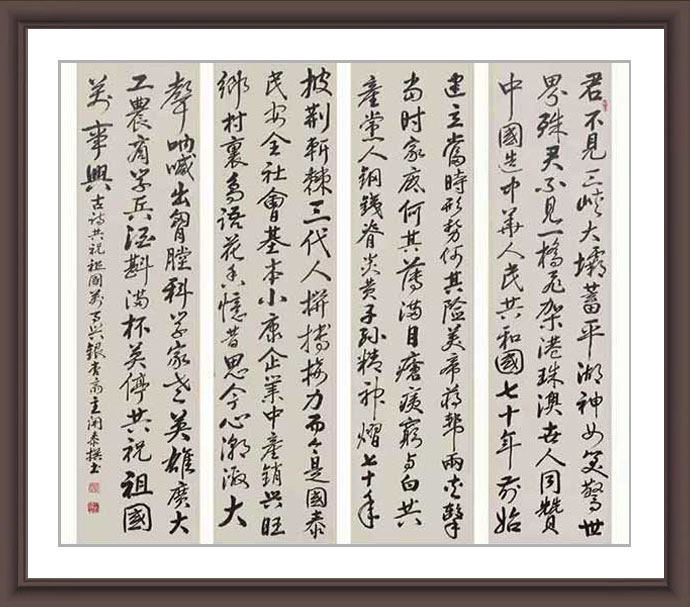 君不見三峽大壩蓄平湖神女笑驚世
界殊君不見一橋飛架港珠澳世人同贊
中國造中華人民共和國七十年前始
建立當時形勢何其險美帝蔣幫兩夾擊
当时家底何其薄滿目瘡痍窮与白共
產黨人鋼鐵脊炎黃子孫精神熠七十年
披荊斬棘三代人拼搏接力而今是國泰
民安全社會基本小康企業中產銷兴旺
鄉村裏鳥語花香憶昔思今心潮激大
聲吶喊出胸膛科学家老英雄廣大
工農商学兵酒斟滿杯莫停共祝祖國
萬事興 古詩共祝祖國萬事兴銀杏齋主泰撰書